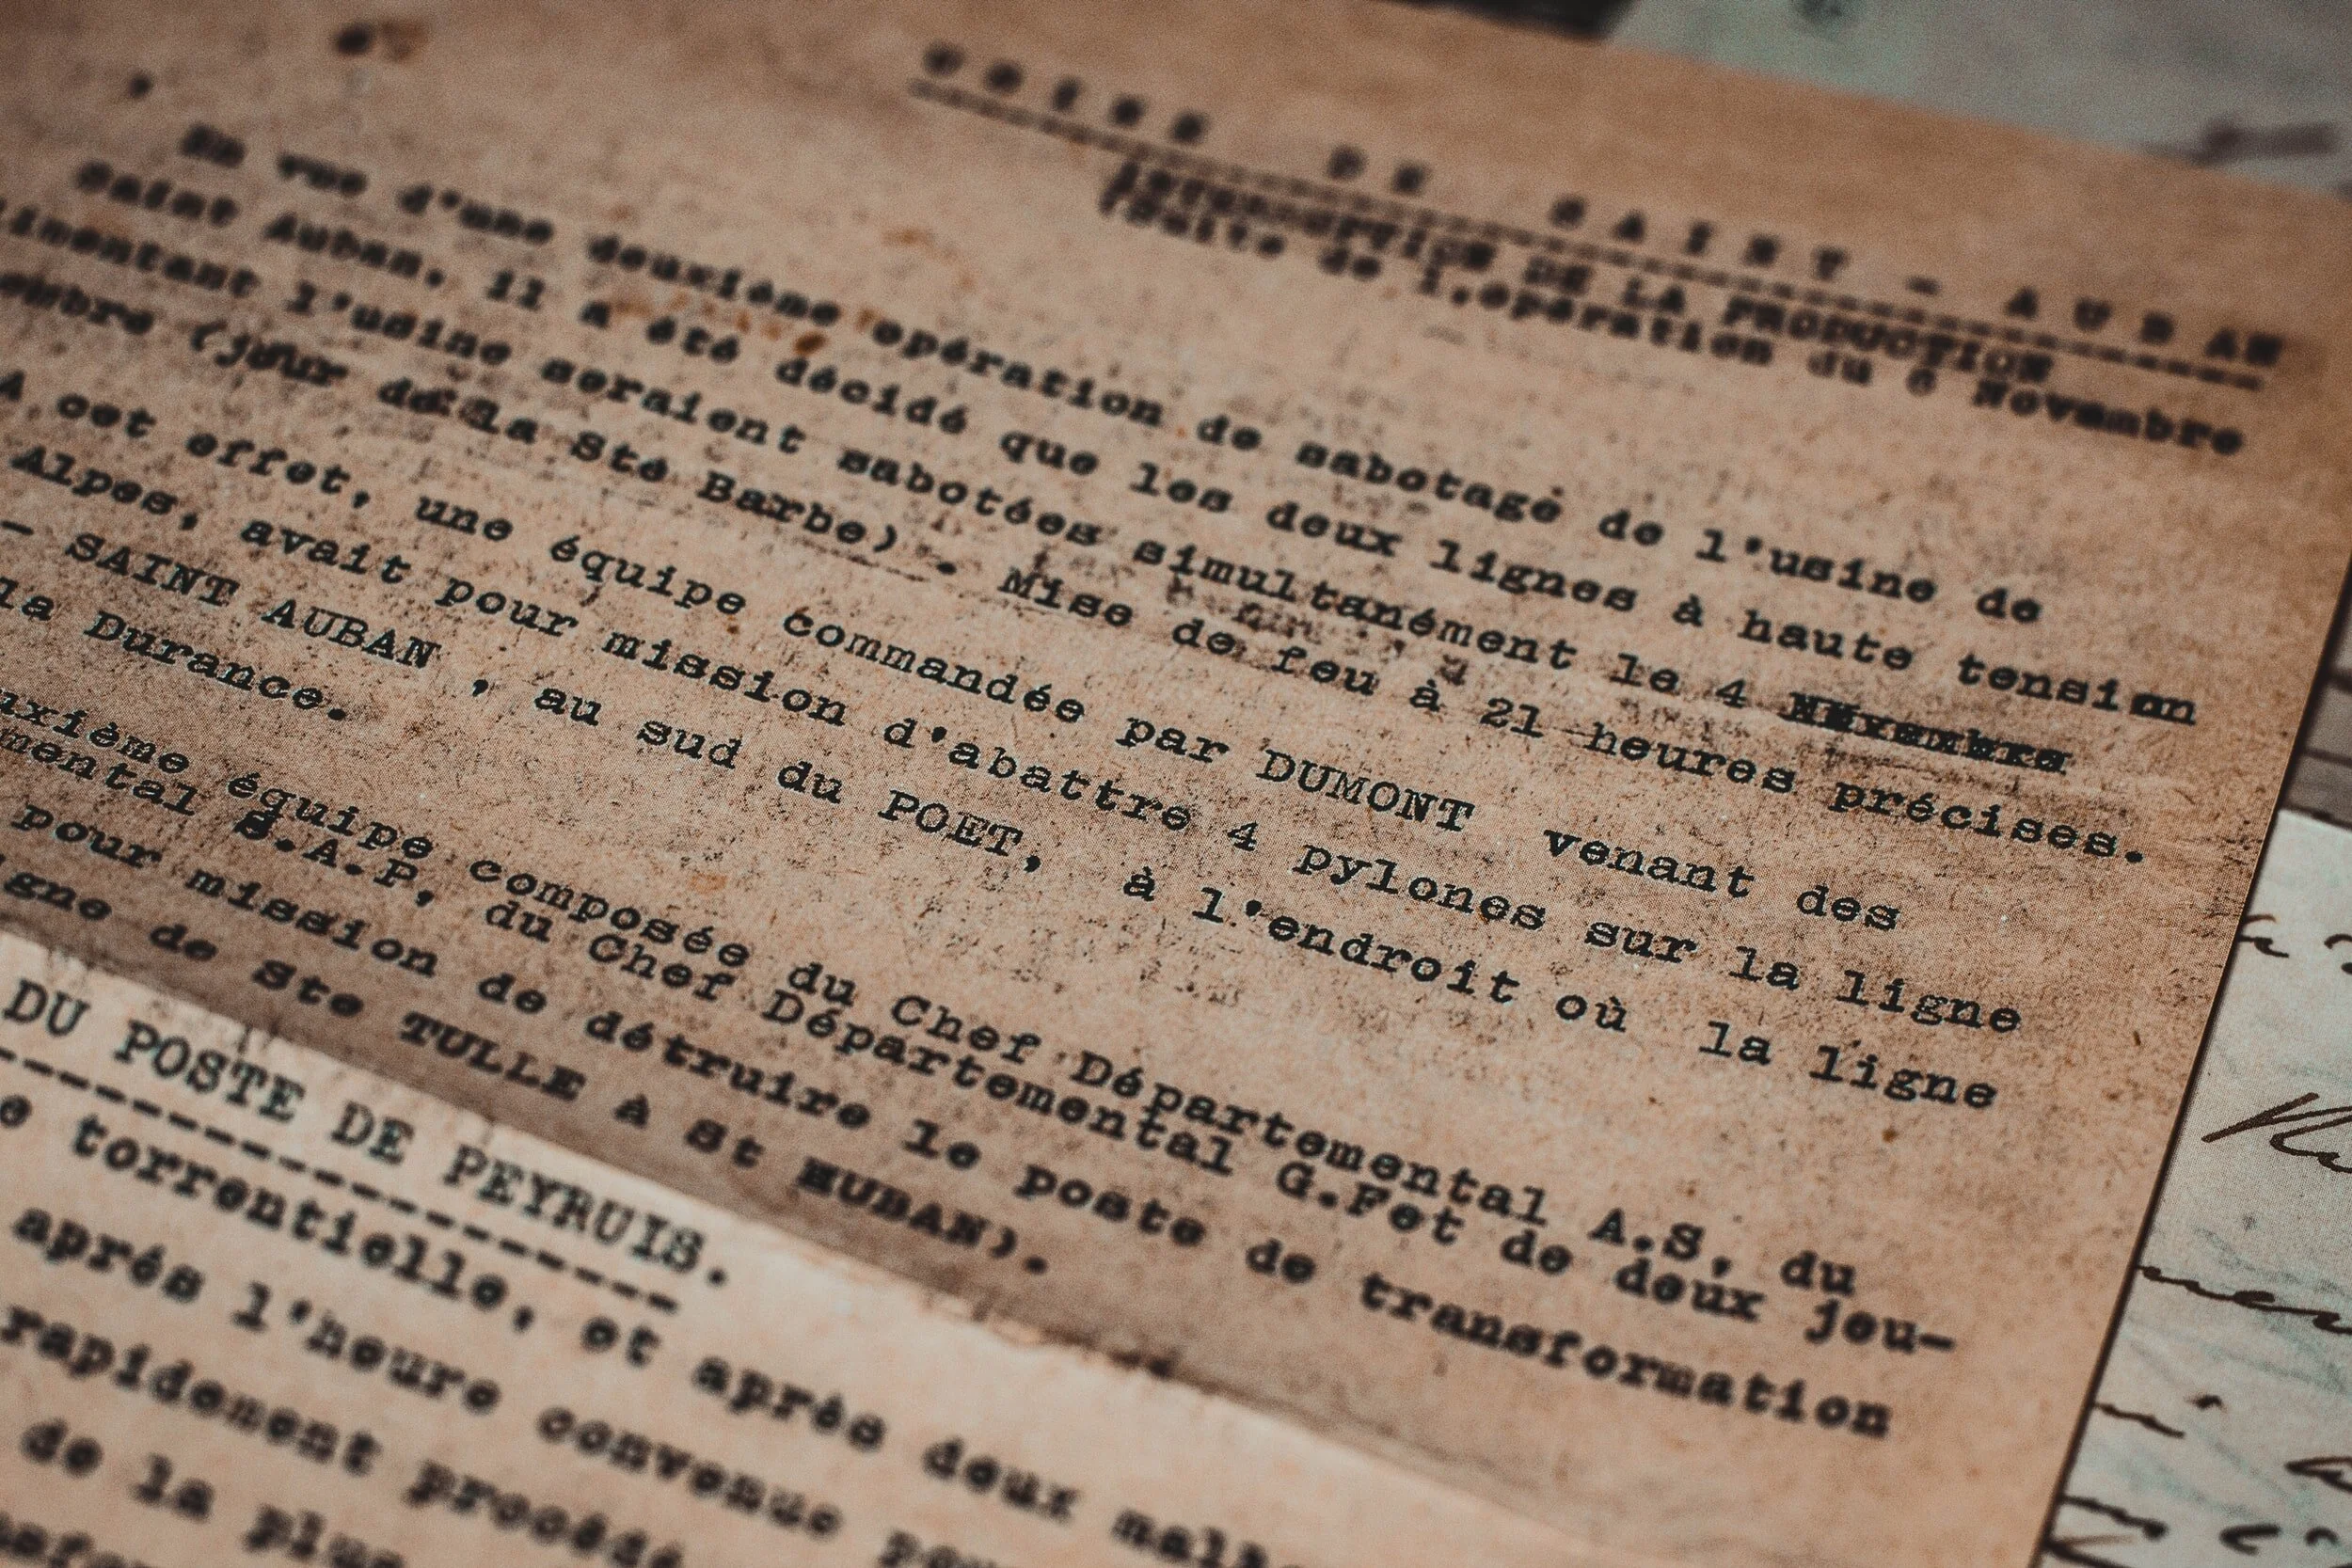 USINE DE SAINT - AUBAN
INTERRUPTION DE LA PRODUCTION
(Suite de l'opération du 6 Novembre
En vue d'une deuxième opération de sabotage de l'usine de
Saint Auban, il a été décidé que les deux lignes à haute tension
imentant l'usine seraient sabotées simultanément le 4
embre (jour de la Sté Barbe). Mise de feu à 21 heures précises.
A cet effet, une équipe commandée par DUMONT venant des
Alpes, avait pour mission d'abattre 4 pylones sur la ligne
- SAINT AUBAN , au sud du POET, à l'endroit où la ligne
la Durance.
uxième équipe composée du Chef Départemental A.S, du
mental S.A.P, du Chef Départemental G.F et de deux jeu-
pour mission de détruire le poste de transformation
igne de Ste TULLE A St AUBAN).
DU POSTE DE PEYRUIS.
e torrentielle, et aprés deux
aprés l'heure convenue
rapidement procédé
de la plus